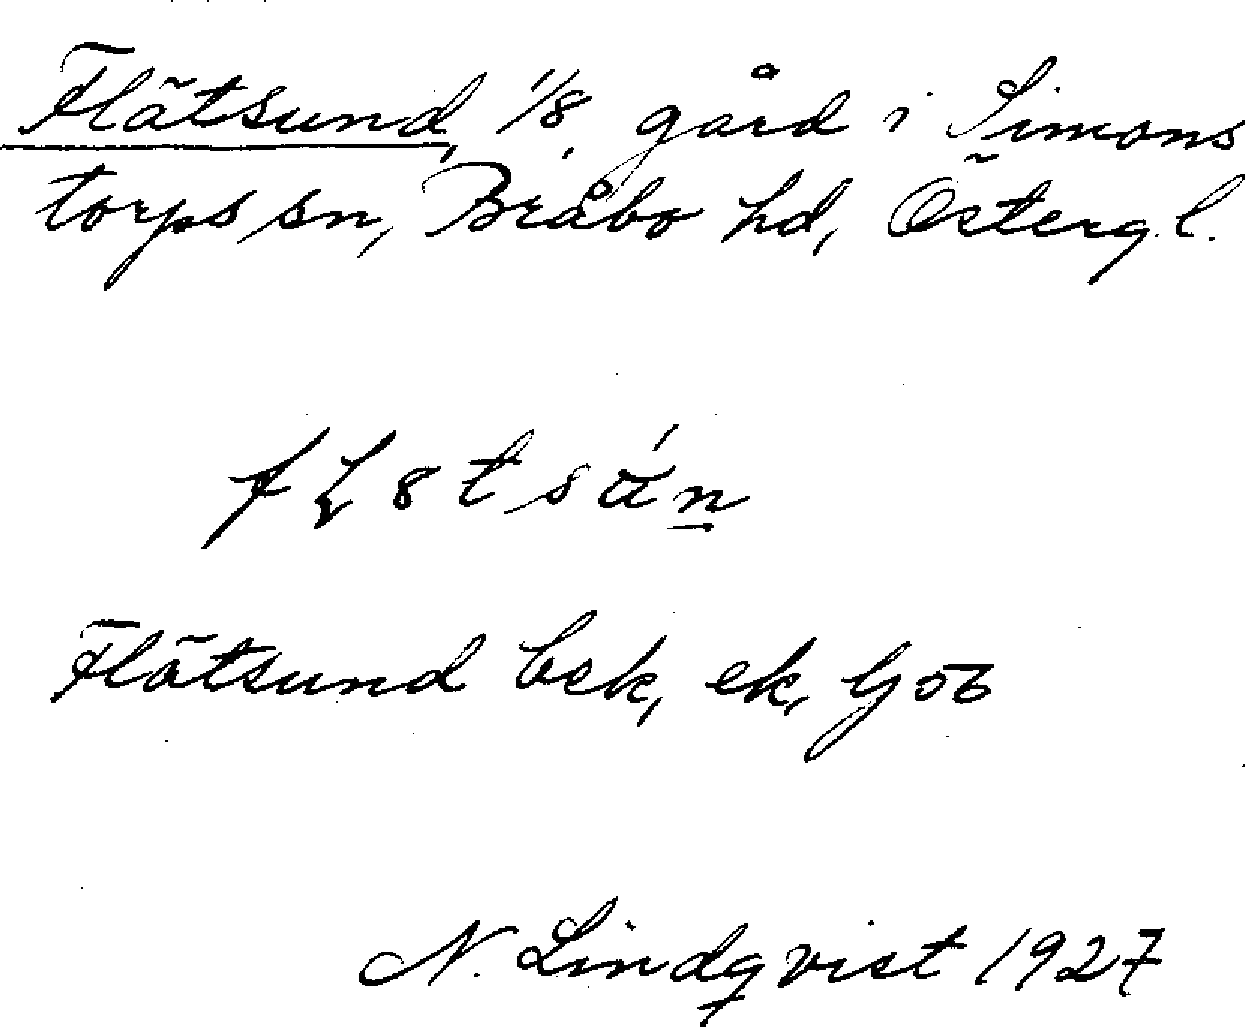 Flätsund, 1/8, gård i Simons
torps sn, Bråbo hd, Östergl.
Flätsund bek, ek, Gob
N. Lindqvist 1927